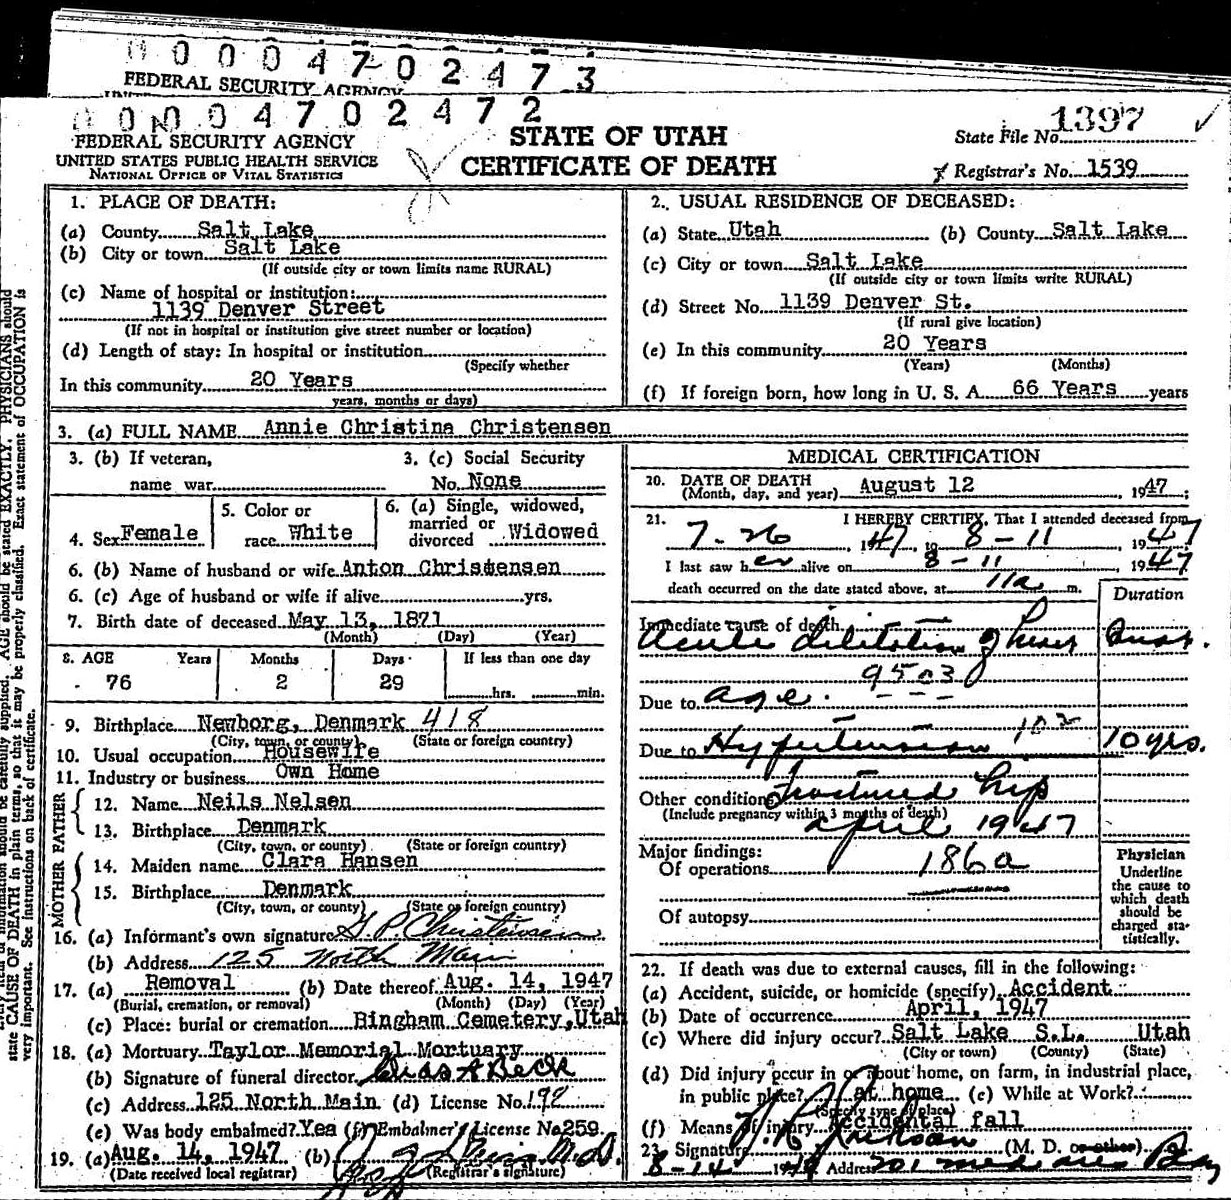 0 0 0 0 4 7 0 2 4 7 3
FEDERAL SECURITY AGENCY
0 0 0 0 4 7 0 2 4 7 2
FEDERAL SECURITY AGENCY
UNITED STATES PUBLIC HEALTH SERVICE
NATIONAL OFFICE OF VITAL STATISTICS
STATE OF UTAH
CERTIFICATE OF DEATH
State File No. 1397
Registrar's No. 1539
1. PLACE OF DEATH:
(a) County Salt Lake
(b) City or town Salt Lake
(If outside city or town limits name RURAL)
(c) Name of hospital or institution:
1139 Denver Street
(If not in hospital or institution give street number or location)
(d) Length of stay: In hospital or institution
(Specify whether
In this community 20 Years
years, months or days)
2. USUAL RESIDENCE OF DECEASED:
(a) State Utah (b) County Salt Lake
(c) City or town Salt Lake
(If outside city or town limits write RURAL)
(d) Street No. 1139 Denver St.
(If rural give location)
(e) In this community 20 Years
(Years) (Months)
(f) If foreign born, how long in U. S. A. 66 Years years
3. (a) FULL NAME Annie Christina Christensen
3. (b) If veteran,
name war
3. (c) Social Security
No. None
4. Sex Female
5. Color or
race White
6. (a) Single, widowed,
married or
divorced Widowed
6. (b) Name of husband or wife Anton Christensen
6. (c) Age of husband or wife if alive yrs.
7. Birth date of deceased May 13, 1871
(Month) (Day) (Year)
8. AGE Years Months Days If less than one day
76 2 29 hrs. min.
9. Birthplace Newborg, Denmark 418
(City, town, or county) (State or foreign country)
10. Usual occupation Housewife
11. Industry or business Own Home
FATHER
12. Name Neils Nelsen
13. Birthplace Denmark
(City, town, or county) (State or foreign country)
MOTHER
14. Maiden name Clara Hansen
15. Birthplace Denmark
(City, town, or county) (State or foreign country)
16. (a) Informant's own signature Christensen
(b) Address 125 North Main
17. (a) Removal (b) Date thereof Aug. 14, 1947
(Burial, cremation, or removal) (Month) (Day) (Year)
(c) Place: burial or cremation Bingham Cemetery, Utah
18. (a) Mortuary Taylor Memorial Mortuary
(b) Signature of funeral director A Beck
(c) Address 125 North Main (d) License No. 192
(e) Was body embalmed? Yea (f) Embalmer's License No 259
19. (a) Aug. 14, 1947 (b)
(Date received local registrar) (Registrar's signature)
MEDICAL CERTIFICATION
20. DATE OF DEATH
(Month, day, and year) August 12, 1947;
21. I HEREBY CERTIFY, That I attended deceased from
7-26, 1947, to 8-11 1947
I last saw her alive on 8-11 1947
death occurred on the date stated above, at 11a m.
Duration
Immediate cause of death
Acute dilitation of heart
9503
Due to age.
102
Due to Hypertension 10 yrs.
Other conditions Fractured hip
(Include pregnancy within 3 months of death)
April 1947
Major findings:
Of operations 186a
Of autopsy
Physician
Underline
the cause to
which death
should be
charged sta-
tistically.
22. If death was due to external causes, fill in the following:
(a) Accident, suicide, or homicide (specify) Accident
(b) Date of occurrence April, 1947
(c) Where did injury occur? Salt Lake S.L. Utah
(City or town) (County) (State)
(d) Did injury occur in or about home, on farm, in industrial place,
in public place? at home (e) While at Work?
(Specify type of place)
(f) Means of injury Accidental fall
23. Signature (M. D. or other)
8-14 19 Address
state CAUSE OF DEATH in plain terms, so that it may be properly classified. Exact statement of OCCUPATION is
very important. See instructions on back of certificate.